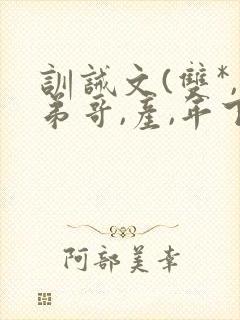 訓誡文(雙*,
弟哥,產,年下
阿部美幸